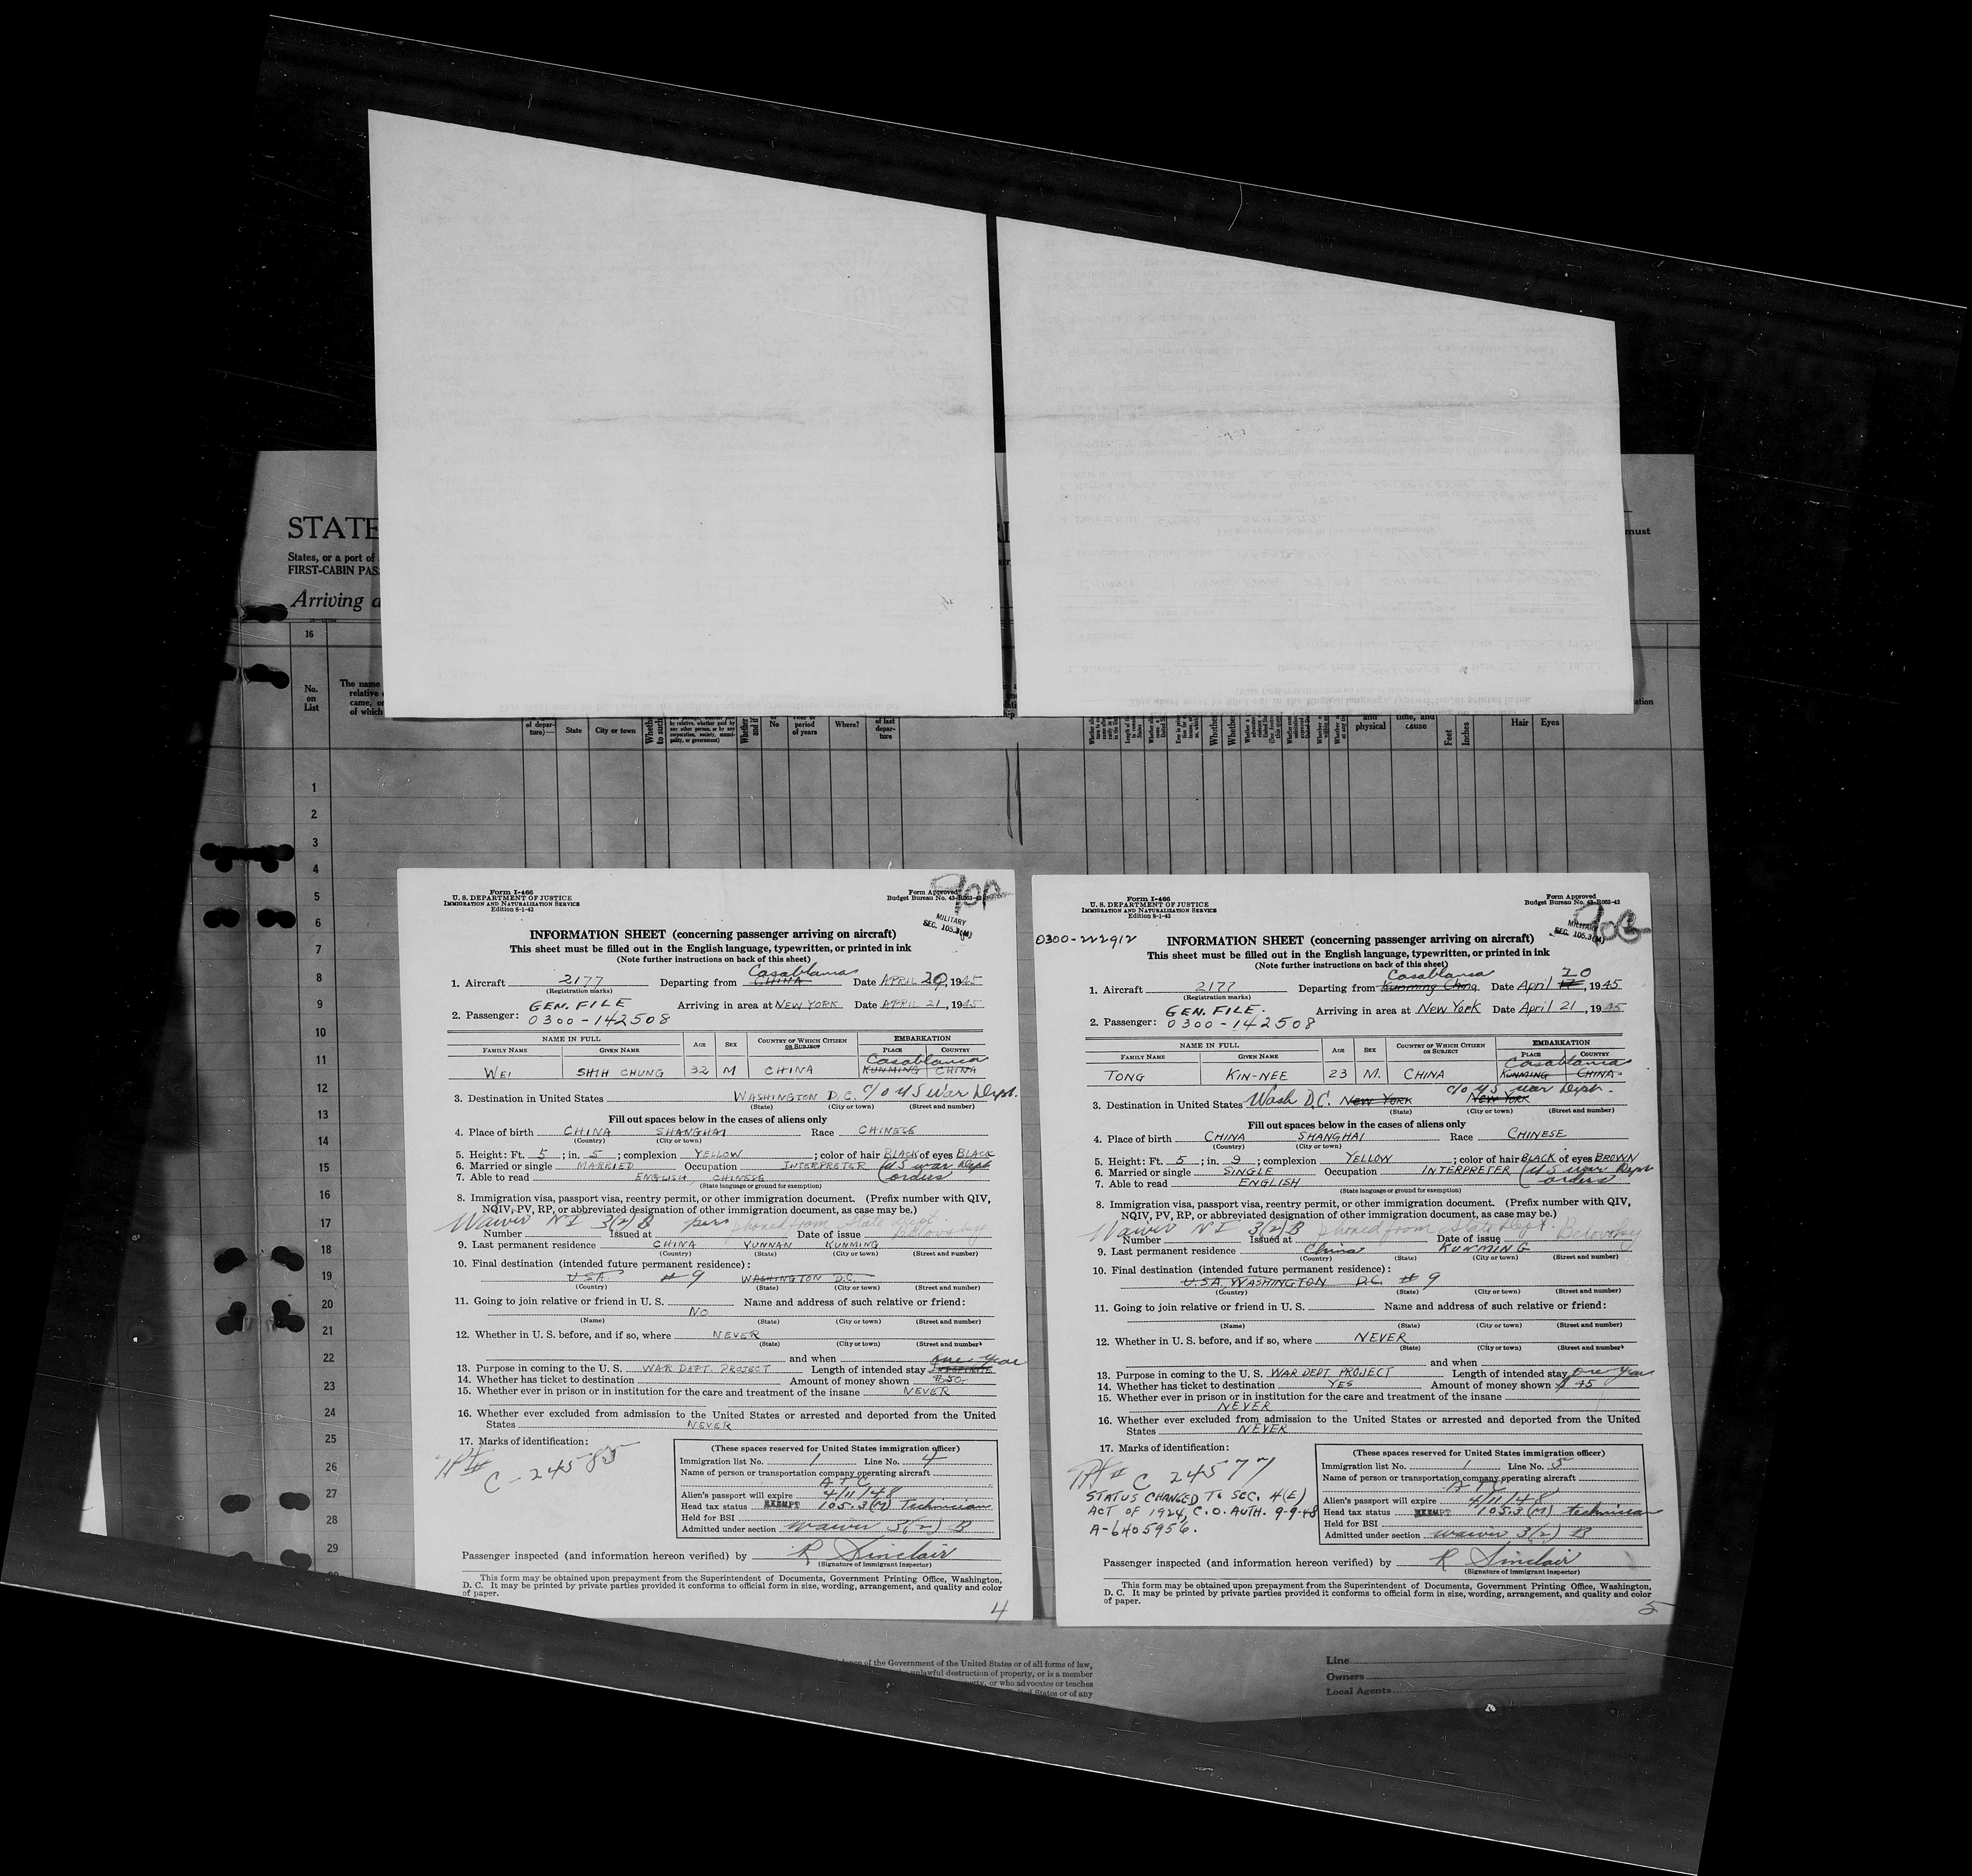 STATE
States, or a port of
FIRST-CABIN PAS
Arriving a
must
16
No. on List
The name
relative
came, or
of which
of depar-
ture)—
State
City or town
by relative, whether paid by
any other person, or by any
corporation, society, munici-
pality, or government)
No
period
of years
Where?
of last
depar-
ture
and
physical
time, and
cause
Feet
Inches
Hair
Eyes
1
2
3
4
5
6
7
8
9
10
11
12
13
14
15
16
17
18
19
20
21
22
23
24
25
26
27
28
29
Form I-466
U. S. DEPARTMENT OF JUSTICE
IMMIGRATION AND NATURALIZATION SERVICE
Edition 8-1-43
Form Approved
Budget Bureau No. 43-R063-42
MILITARY
SEC. 105.3(M)
INFORMATION SHEET (concerning passenger arriving on aircraft)
This sheet must be filled out in the English language, typewritten, or printed in ink
(Note further instructions on back of this sheet)
Casablanca
1. Aircraft 2177 Departing from CHINA Date APRIL 20, 1945
(Registration marks)
GEN. FILE Arriving in area at NEW YORK Date APRIL 21, 1945
2. Passenger: 0300-142508
NAME IN FULL AGE SEX COUNTRY OF WHICH CITIZEN OR SUBJECT EMBARKATION
FAMILY NAME GIVEN NAME PLACE COUNTRY
Casablanca
WEI SHIH CHUNG 32 M CHINA KUNMING CHINA
3. Destination in United States WASHINGTON D.C. c/o US War Dept.
(State) (City or town) (Street and number)
Fill out spaces below in the cases of aliens only
4. Place of birth CHINA SHANGHAI Race CHINESE
(Country) (City or town)
5. Height: Ft. 5; in. 5; complexion YELLOW; color of hair BLACK of eyes BLACK
6. Married or single MARRIED Occupation INTERPRETER (US war Dept
7. Able to read ENGLISH, CHINESE (orders
(State language or ground for exemption)
8. Immigration visa, passport visa, reentry permit, or other immigration document. (Prefix number with QIV,
NQIV, PV, RP, or abbreviated designation of other immigration document, as case may be.)
Waiver NI 3(2) B pers phoned from State Dept. Belovsky
Number Issued at Date of issue
9. Last permanent residence CHINA YUNNAN KUNMING
(Country) (State) (City or town) (Street and number)
10. Final destination (intended future permanent residence):
U.S.A. # 9 WASHINGTON D.C.
(Country) (State) (City or town) (Street and number)
11. Going to join relative or friend in U. S. NO Name and address of such relative or friend:
(Name) (State) (City or town) (Street and number)
12. Whether in U. S. before, and if so, where NEVER
(State) (City or town) (Street and number)
and when
one year
13. Purpose in coming to the U. S. WAR DEPT. PROJECT Length of intended stay
14. Whether has ticket to destination Amount of money shown $50-
15. Whether ever in prison or in institution for the care and treatment of the insane NEVER
16. Whether ever excluded from admission to the United States or arrested and deported from the United
States NEVER
17. Marks of identification:
C-24585
(These spaces reserved for United States immigration officer)
Immigration list No. 1 Line No. 4
Name of person or transportation company operating aircraft
A T C
Alien's passport will expire 4/11/48
Head tax status EXEMPT 105.3(M) Technician
Held for BSI
Admitted under section waiver 3(2) B
Passenger inspected (and information hereon verified) by R Sinclair
(Signature of immigrant inspector)
This form may be obtained upon prepayment from the Superintendent of Documents, Government Printing Office, Washington,
D. C. It may be printed by private parties provided it conforms to official form in size, wording, arrangement, and quality and color
of paper.
4
Form I-466
U. S. DEPARTMENT OF JUSTICE
IMMIGRATION AND NATURALIZATION SERVICE
Edition 8-1-43
Form Approved
Budget Bureau No. 43-R063-42
MILITARY
SEC. 105.3(M)
0300-222912
INFORMATION SHEET (concerning passenger arriving on aircraft)
This sheet must be filled out in the English language, typewritten, or printed in ink
(Note further instructions on back of this sheet)
Casablanca 20
1. Aircraft 2177 Departing from Kunming China Date April , 1945
(Registration marks)
GEN. FILE. Arriving in area at New York Date April 21, 1945
2. Passenger: 0300-142508
NAME IN FULL AGE SEX COUNTRY OF WHICH CITIZEN OR SUBJECT EMBARKATION
FAMILY NAME GIVEN NAME PLACE COUNTRY
Casablanca
TONG KIN-NEE 23 M. CHINA KUNMING CHINA
c/o US war Dept.
3. Destination in United States Wash D.C. NEW YORK NEW YORK
(State) (City or town) (Street and number)
Fill out spaces below in the cases of aliens only
4. Place of birth CHINA SHANGHAI Race CHINESE
(Country) (City or town)
5. Height: Ft. 5; in. 9; complexion YELLOW; color of hair BLACK of eyes BROWN
6. Married or single SINGLE Occupation INTERPRETER (US war Dept
7. Able to read ENGLISH orders
(State language or ground for exemption)
8. Immigration visa, passport visa, reentry permit, or other immigration document. (Prefix number with QIV,
NQIV, PV, RP, or abbreviated designation of other immigration document, as case may be.)
Waiver NI 3(2) B phoned from State Dept. Belovsky
Number Issued at Date of issue
9. Last permanent residence China KUNMING
(Country) (State) (City or town) (Street and number)
10. Final destination (intended future permanent residence):
U.S.A. WASHINGTON D.C. # 9
(Country) (State) (City or town) (Street and number)
11. Going to join relative or friend in U. S. Name and address of such relative or friend:
(Name) (State) (City or town) (Street and number)
12. Whether in U. S. before, and if so, where NEVER
(State) (City or town) (Street and number)
and when
13. Purpose in coming to the U. S. WAR DEPT. PROJECT Length of intended stay one year
14. Whether has ticket to destination YES Amount of money shown $ 45
15. Whether ever in prison or in institution for the care and treatment of the insane
NEVER
16. Whether ever excluded from admission to the United States or arrested and deported from the United
States NEVER
17. Marks of identification:
C 24577
STATUS CHANGED TO SEC. 4(E)
ACT OF 1924, C.O. AUTH. 9-9-48
A-6405956.
(These spaces reserved for United States immigration officer)
Immigration list No. 1 Line No. 5
Name of person or transportation company operating aircraft
A T C
Alien's passport will expire 4/11/48
Head tax status EXEMPT 105.3(M) technician
Held for BSI
Admitted under section waiver 3(2) B
Passenger inspected (and information hereon verified) by R Sinclair
(Signature of immigrant inspector)
This form may be obtained upon prepayment from the Superintendent of Documents, Government Printing Office, Washington,
D. C. It may be printed by private parties provided it conforms to official form in size, wording, arrangement, and quality and color
of paper.
5
of the Government of the United States or of all forms of law,
unlawful destruction of property, or is a member
or who advocates or teaches
United States or of any
Line
Owners
Local Agents